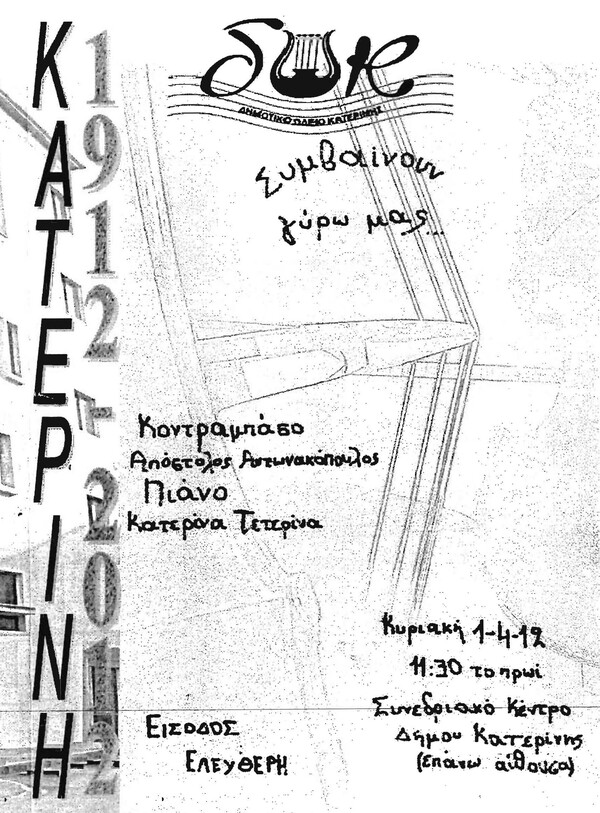 ΚΑΤΕΡΙΝΗ
1912 - 2012
δωκ
ΔΗΜΟΤΙΚΟ ΩΔΕΙΟ ΚΑΤΕΡΙΝΗΣ
Συμβαίνουν
γύρω μας...
Κοντραμπάσο
Απόστολος Αντωνακόπουλος
Πιάνο
Κατερίνα Τετερίνα
Κυριακή 1-4-12
11:30 το πρωί
Συνεδριακό Κέντρο
Δήμου Κατερίνης
(επάνω αίθουσα)
ΕΙΣΟΔΟΣ
ΕΛΕΥΘΕΡΗ